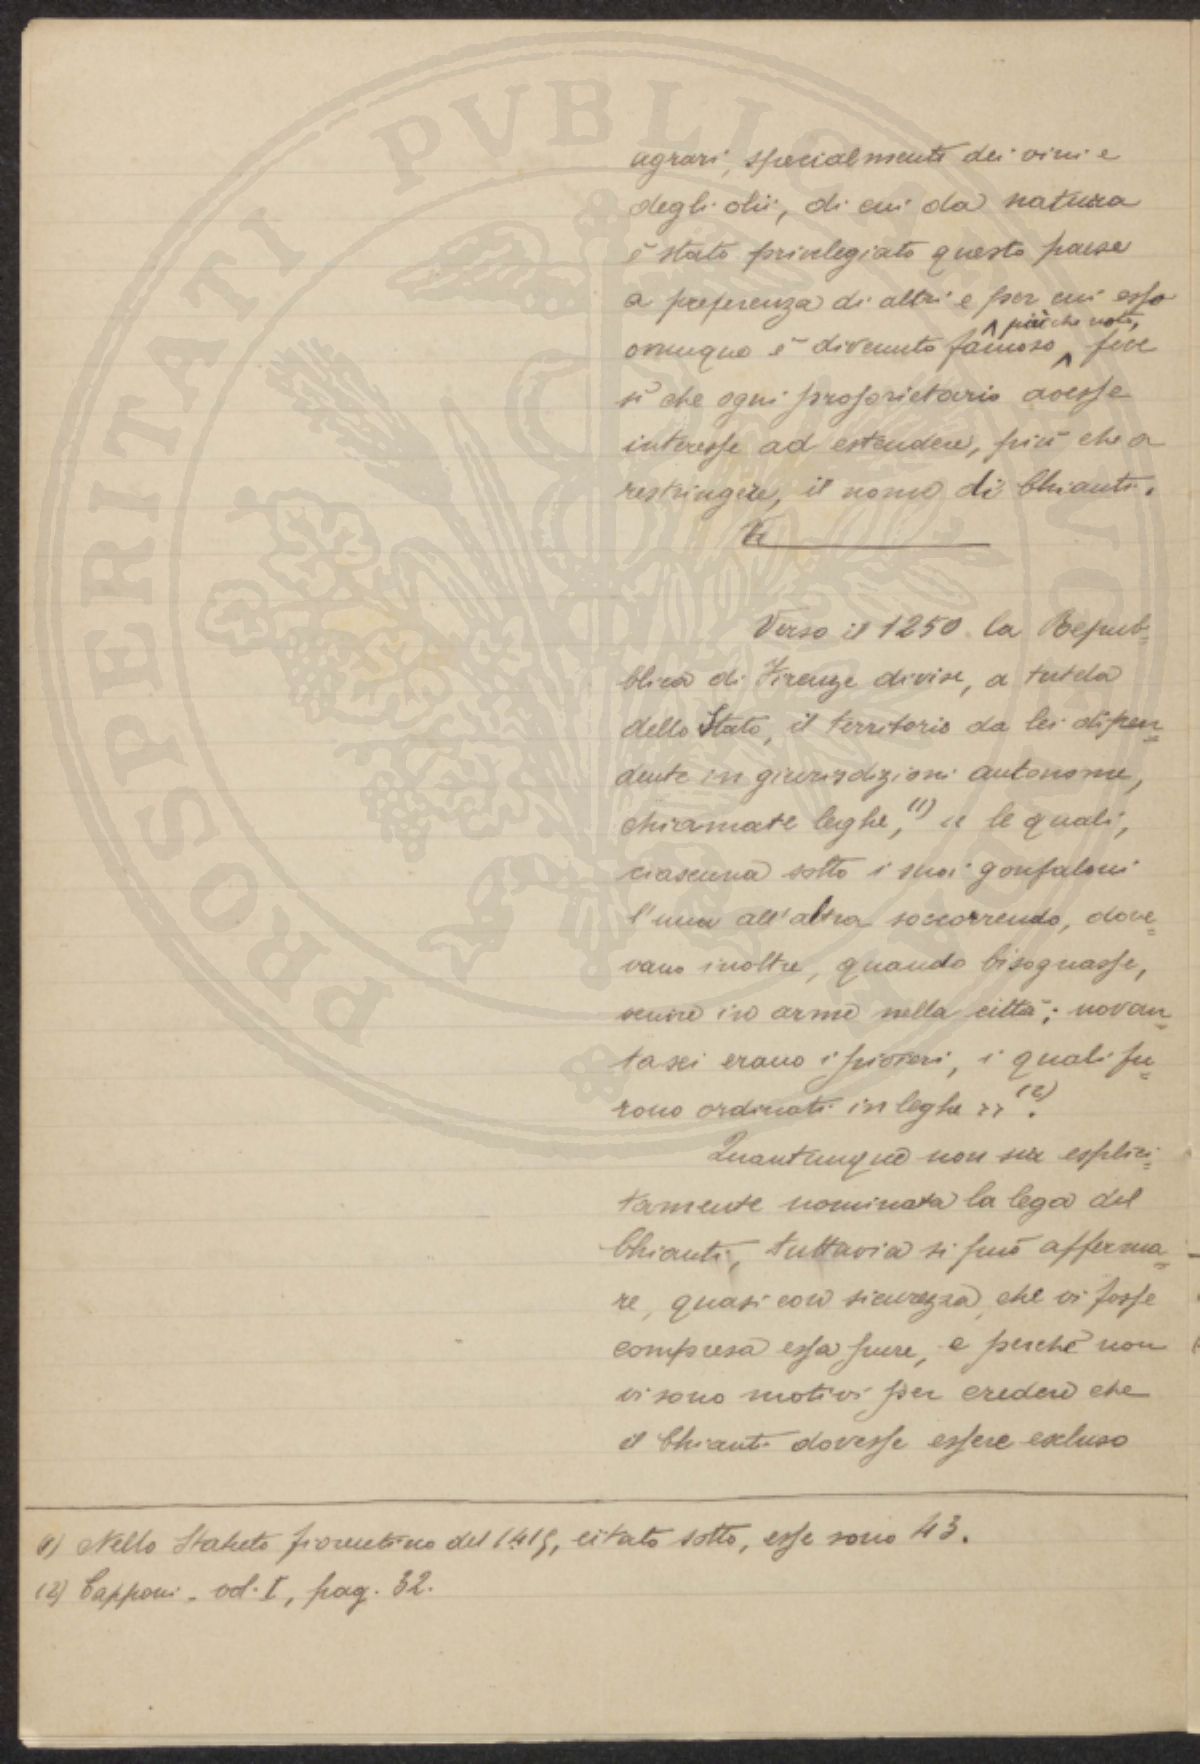 agrari, specialmente dei vini e
degli olii, di cui da natura
è stato privilegiato questo paese
a preferenza di altri e per cui esso
più che noto,
ovunque è divenuto famoso, fece
sì che ogni proprietario avesse
interesse ad estendere, più che a
restringere, il nome di Chianti.
Ve
Verso il 1250 la Repub=
blica di Firenze divise, a tutela
dello Stato, il territorio da lei dipen=
dente in giurisdizioni autonome,
chiamate leghe, (1) « le quali,
ciascuna sotto i suoi gonfaloni
l'una all'altra soccorrendo, dove=
vano inoltre, quando bisognasse,
venire in arme nella città; novan=
tasei erano i pivieri, i quali fu=
rono ordinati in leghe » (2).
Quantunque non sia esplici=
tamente nominata la lega del
Chianti, tuttavia si può afferma=
re, quasi con sicurezza, che vi fosse
compresa essa pure, e perchè non
vi sono motivi per credere che
il Chianti dovesse essere escluso
(1) Nello Statuto fiorentino del 1415, citato sotto, esse sono 43.
(2) Capponi - vol. I, pag. 32.
PROSPERITATI PVBLICAE